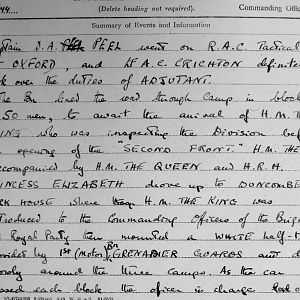 44.
(Delete heading not required).
Commanding Offic
Summary of Events and Information
ptain J.A. PEEL went on R.A.C. Tactical
OXFORD, and Lt A.C. CRICHTON definite
k over the duties of ADJUTANT.
The Bn lined the road through Camp in block
50 men, to await the arrival of H.M. TH
ING who was inspecting the Division bef
opening of the "SECOND FRONT." H.M. THE
companied by H.M. THE QUEEN and H.R.H.
INCESS ELIZABETH drove up to DUNCOMBE
RK HOUSE where H.M. THE KING was
troduced to the Commanding Officers of the Brig
Royal Party then mounted a WHITE half-t
ovided by 1st (Motor) Bn GRENADIER GUARDS and d
owly around the three Camps. As the car
ssed each block the officer in charge